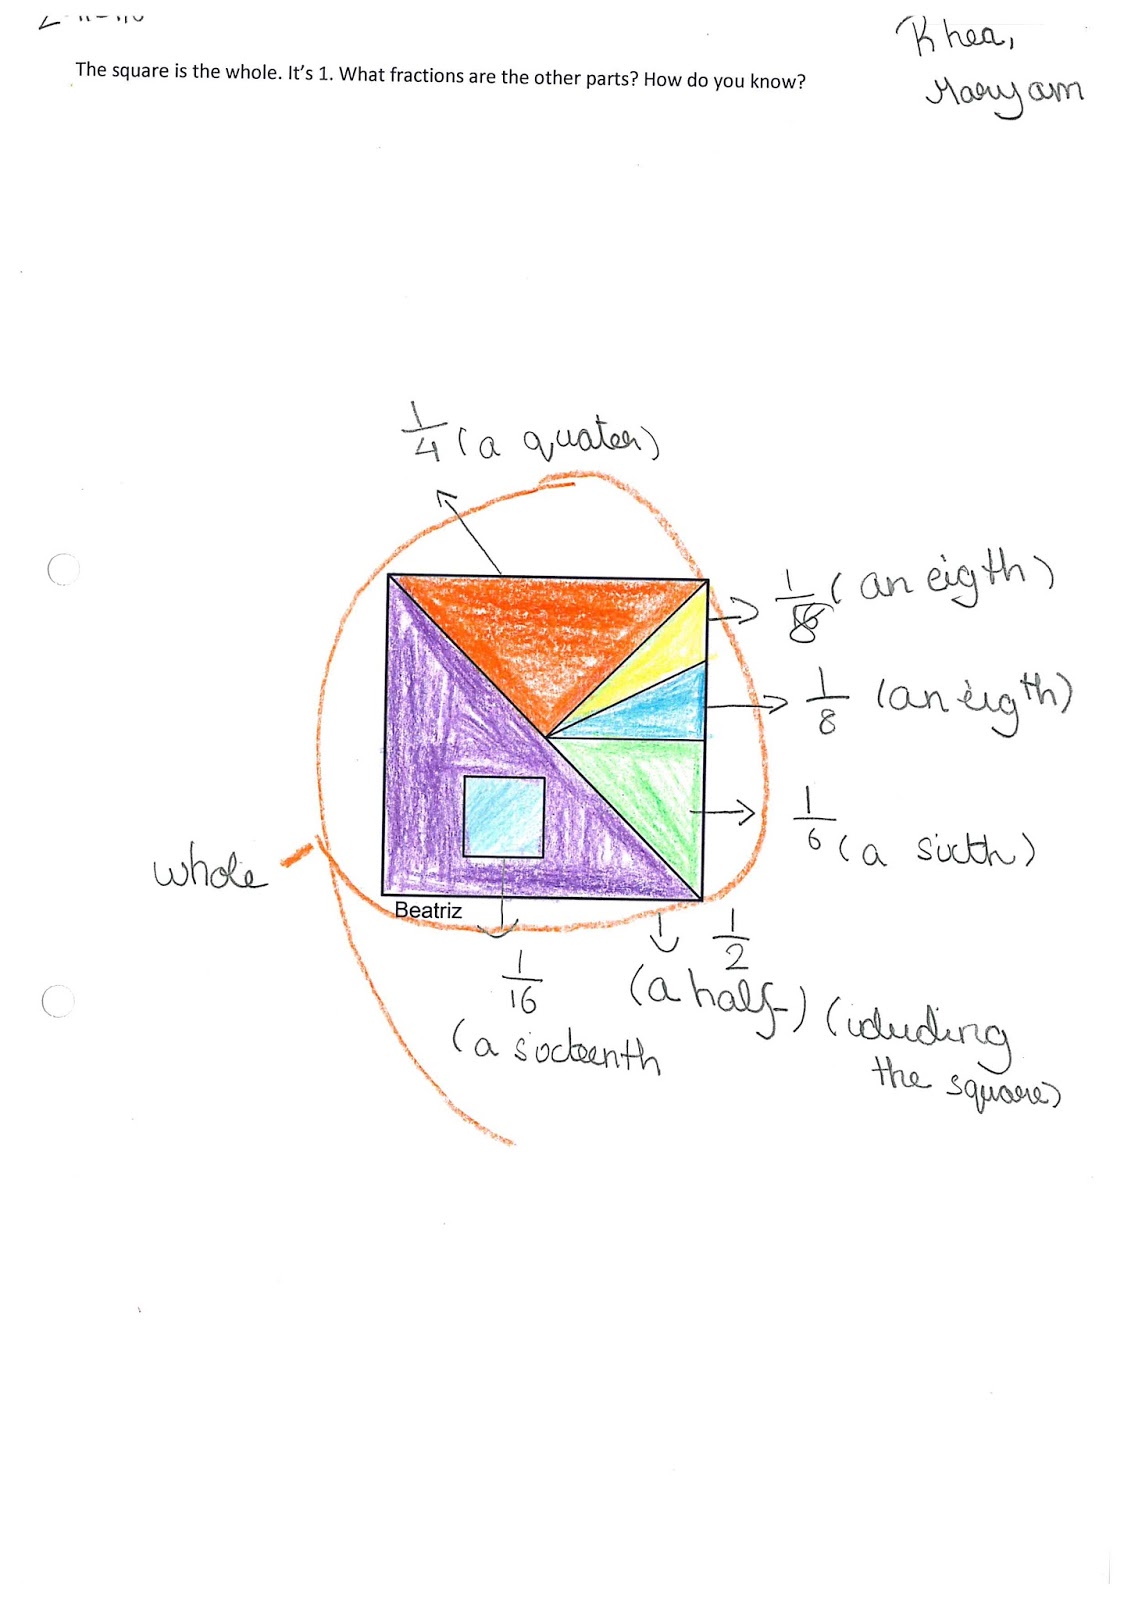 Rhea,
Maryam
The square is the whole. It's 1. What fractions are the other parts? How do you know?
1/4 (a quater)
1/8 (an eigth)
1/8 (an eigth)
1/6 (a sixth)
whole
Beatriz
1/16
(a sixteenth
1/2
(a half) (icluding
the square)